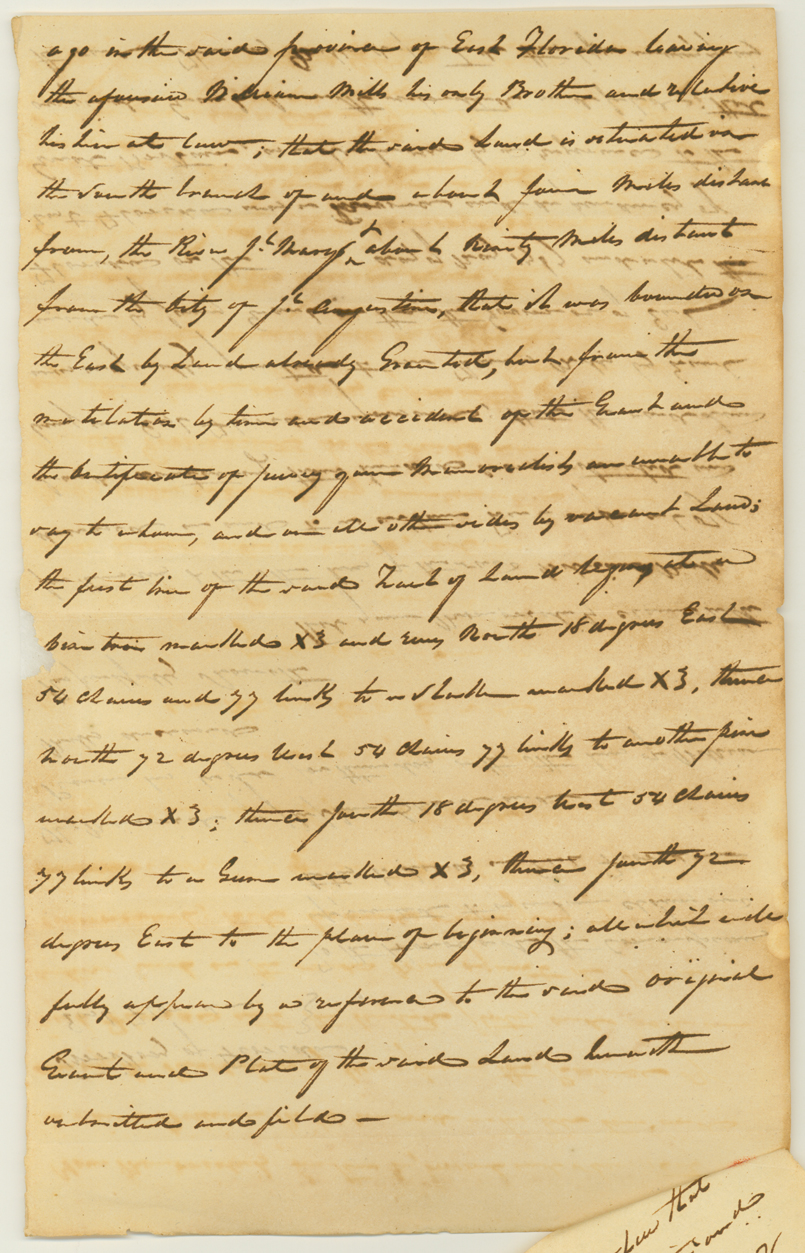 ago in the said province of East Florida leaving
the aforesaid William Mills his only Brother and relative
his heir at law; that the said Land is situated in
the South branch of and about four Miles distant
from, the River St. Marys, & about Ninety Miles distant
from the City of St. Augustine, that it was bounded on
the East by Land already Granted, but from the
mutilation by time and accident of the Grant and
the Certificate of survey your Memorialists are unable to
say to whom, and on all other sides by vacant Land;
the first line of the said Tract of Land begins at a
pine tree marked X3 and runs North 18 degrees East
54 Chains and 77 links to a Stake marked X3, thence
North 72 degrees West 54 Chains 77 links to another pine
marked X3; thence South 18 degrees West 54 Chains
77 links to a Gum marked X3, thence South 72
degrees East to the place of beginning; all which will
fully appear by a reference to the said original
Grant and Plat of the said Land herewith
submitted and filed —
that